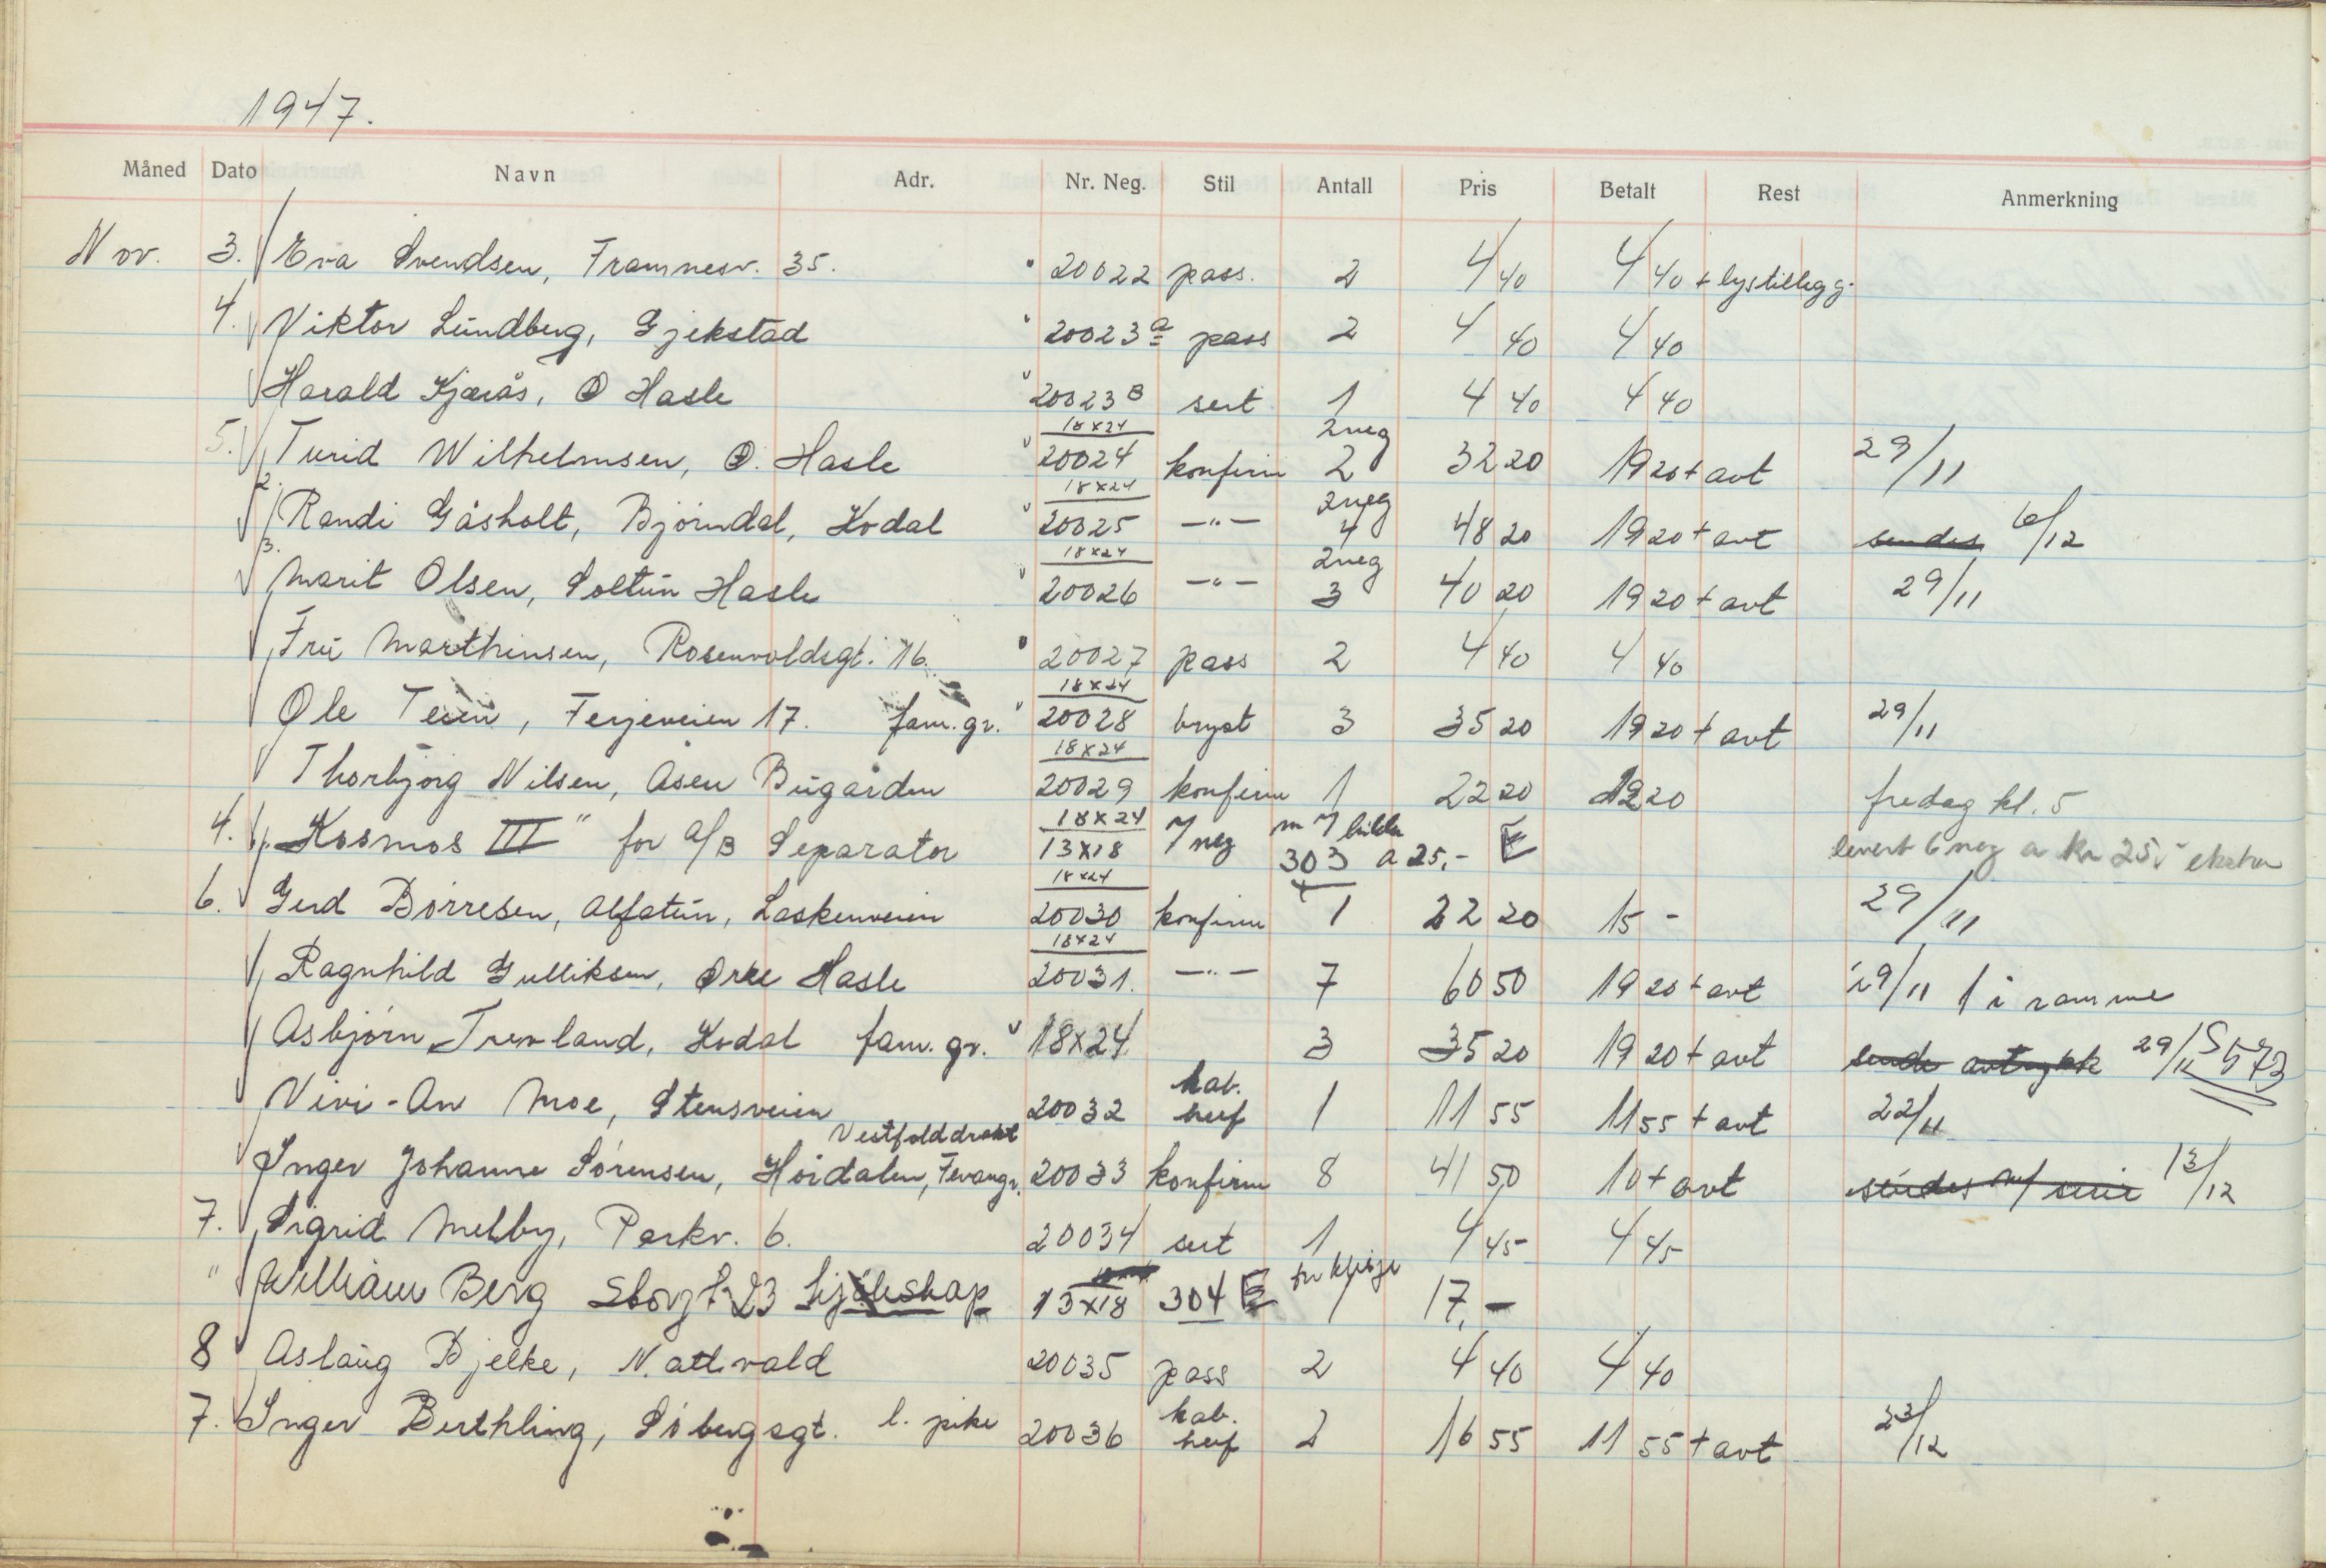 1947.
Måned Dato Navn Adr. Nr. Neg. Stil Antall Pris Betalt Rest Anmerkning
Nov. 3. Eva Svendsen, Framnesv. 35. 20022 pass. 2 4 40 4 40 + lystillegg.
4. Viktor Lundberg, Gjekstad 20023 a pass 2 4 40 4 40
Harald Kjærås, Ø Hasle 20023 B sert 1 4 40 4 40
18x24 2 neg
5. Turid Wilhelmsen, Ø. Hasle 20024 konfirm 2 32 20 19 20 + avt 29/11
2. 18x24 2 neg
Randi Gåsholt, Bjørndal, Kodal 20025 —"— 4 48 20 19 20 + avt sendes 6/12
3. 18x24 2 neg
Marit Olsen, Soltun Hasle 20026 —"— 3 40 20 19 20 + avt 29/11
Fru Marthinsen, Rosenvoldsgt. 16. 20027 pass 2 4 40 4 40
18x24
Ole Teien, Ferjeveien 17. fam. gr. 20028 bryst 3 35 20 19 20 + avt 29/11
18x24
Thorbjørg Nilsen, Åsen Bugården 20029 konfirm 1 22 20 20 fredag kl. 5
18x24 m 7 bilder
4. "Kosmos III" for A/B Separator 13x18 7 neg 303 a 25,- E levert 6 neg a kr 25,- ekstra
18x24
6. Gerd Børresen, Alfatun, Laskenveien 20030 konfirm 1 22 20 15 - 29/11
18x24
Ragnhild Gulliksen, Orre Hasle 20031. —"— 7 60 50 19 20 + avt 29/11 1 i ramme
Asbjørn Trevland, Kodal fam. gr. 18x24 3 35 20 19 20 + avt sende avtrykk 29/11 S 573
kab.
Vivi-An Moe, Stensveien 20032 heif 1 11 55 11 55 + avt 22/11
Vestfolddrakt
Inger Johanne Sørensen, Høidalen, Fevangr. 20033 konfirm 8 41 50 10 + avt sendes m/ serie 13/12
7. Sigrid Melby, Parkv. 6. 20034 sert 1 4 45 4 45
" William Berg Storgt 23 kjøleskap 13x18 304 E 1 17,-
8 Aslaug Bjelke, Nattvald 20035 pass 2 4 40 4 40
kab.
7. Inger Berthling, Søbergsgt. l. pike 20036 heif 2 16 55 11 55 + avt 23/12